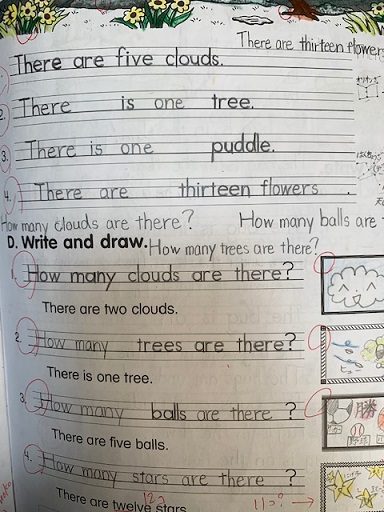 There are thirteen flowers
There are five clouds.
2. There is one tree.
3. There is one puddle.
4. There are thirteen flowers.
How many clouds are there? How many balls are
D. Write and draw. How many trees are there?
1. How many clouds are there?
There are two clouds.
2. How many trees are there?
There is one tree.
3. How many balls are there ?
勝
There are five balls.
4. How many stars are there ?
There are twelve stars